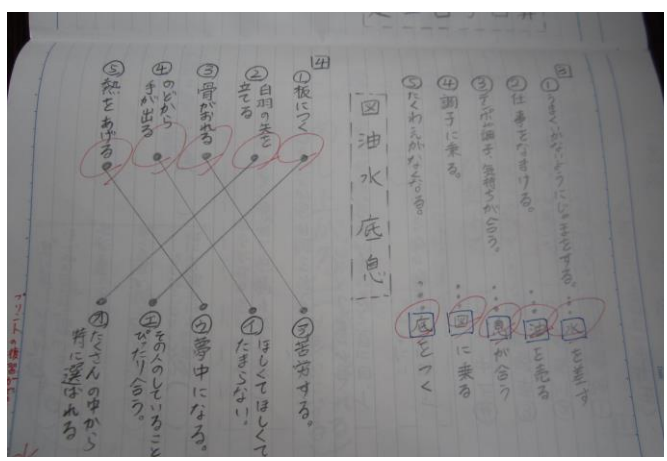 3
①うまくいかないようにじゃまをする。…水を差す
②仕事をなまける。…油を売る
③テンポや調子、気持ちが合う。…息が合う
④調子に乗る。…図に乗る
⑤たくわえがなくなる。…底をつく
図 油 水 底 息
4
①板につく
②白羽の矢を
立てる
③骨がおれる
④のどから
手が出る
⑤熱をあげる
㋐苦労する。
㋑ほしくてほしくて
たまらない。
㋒夢中になる。
㋓その人のしていること
ぴったり合う。
㋔たくさんの中から
特に選ばれる